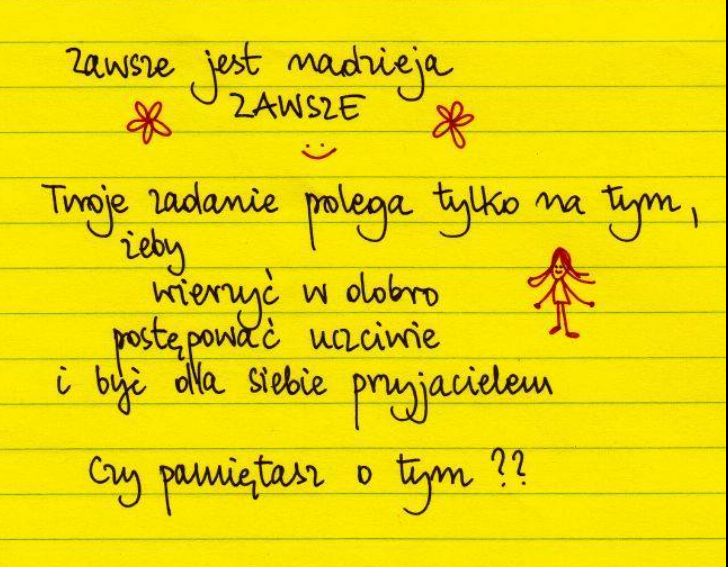 Zawsze jest nadzieja
ZAWSZE
Twoje zadanie polega tylko na tym,
żeby
wierzyć w dobro
postępować uczciwie
i być dla siebie przyjacielem
Czy pamiętasz o tym ??